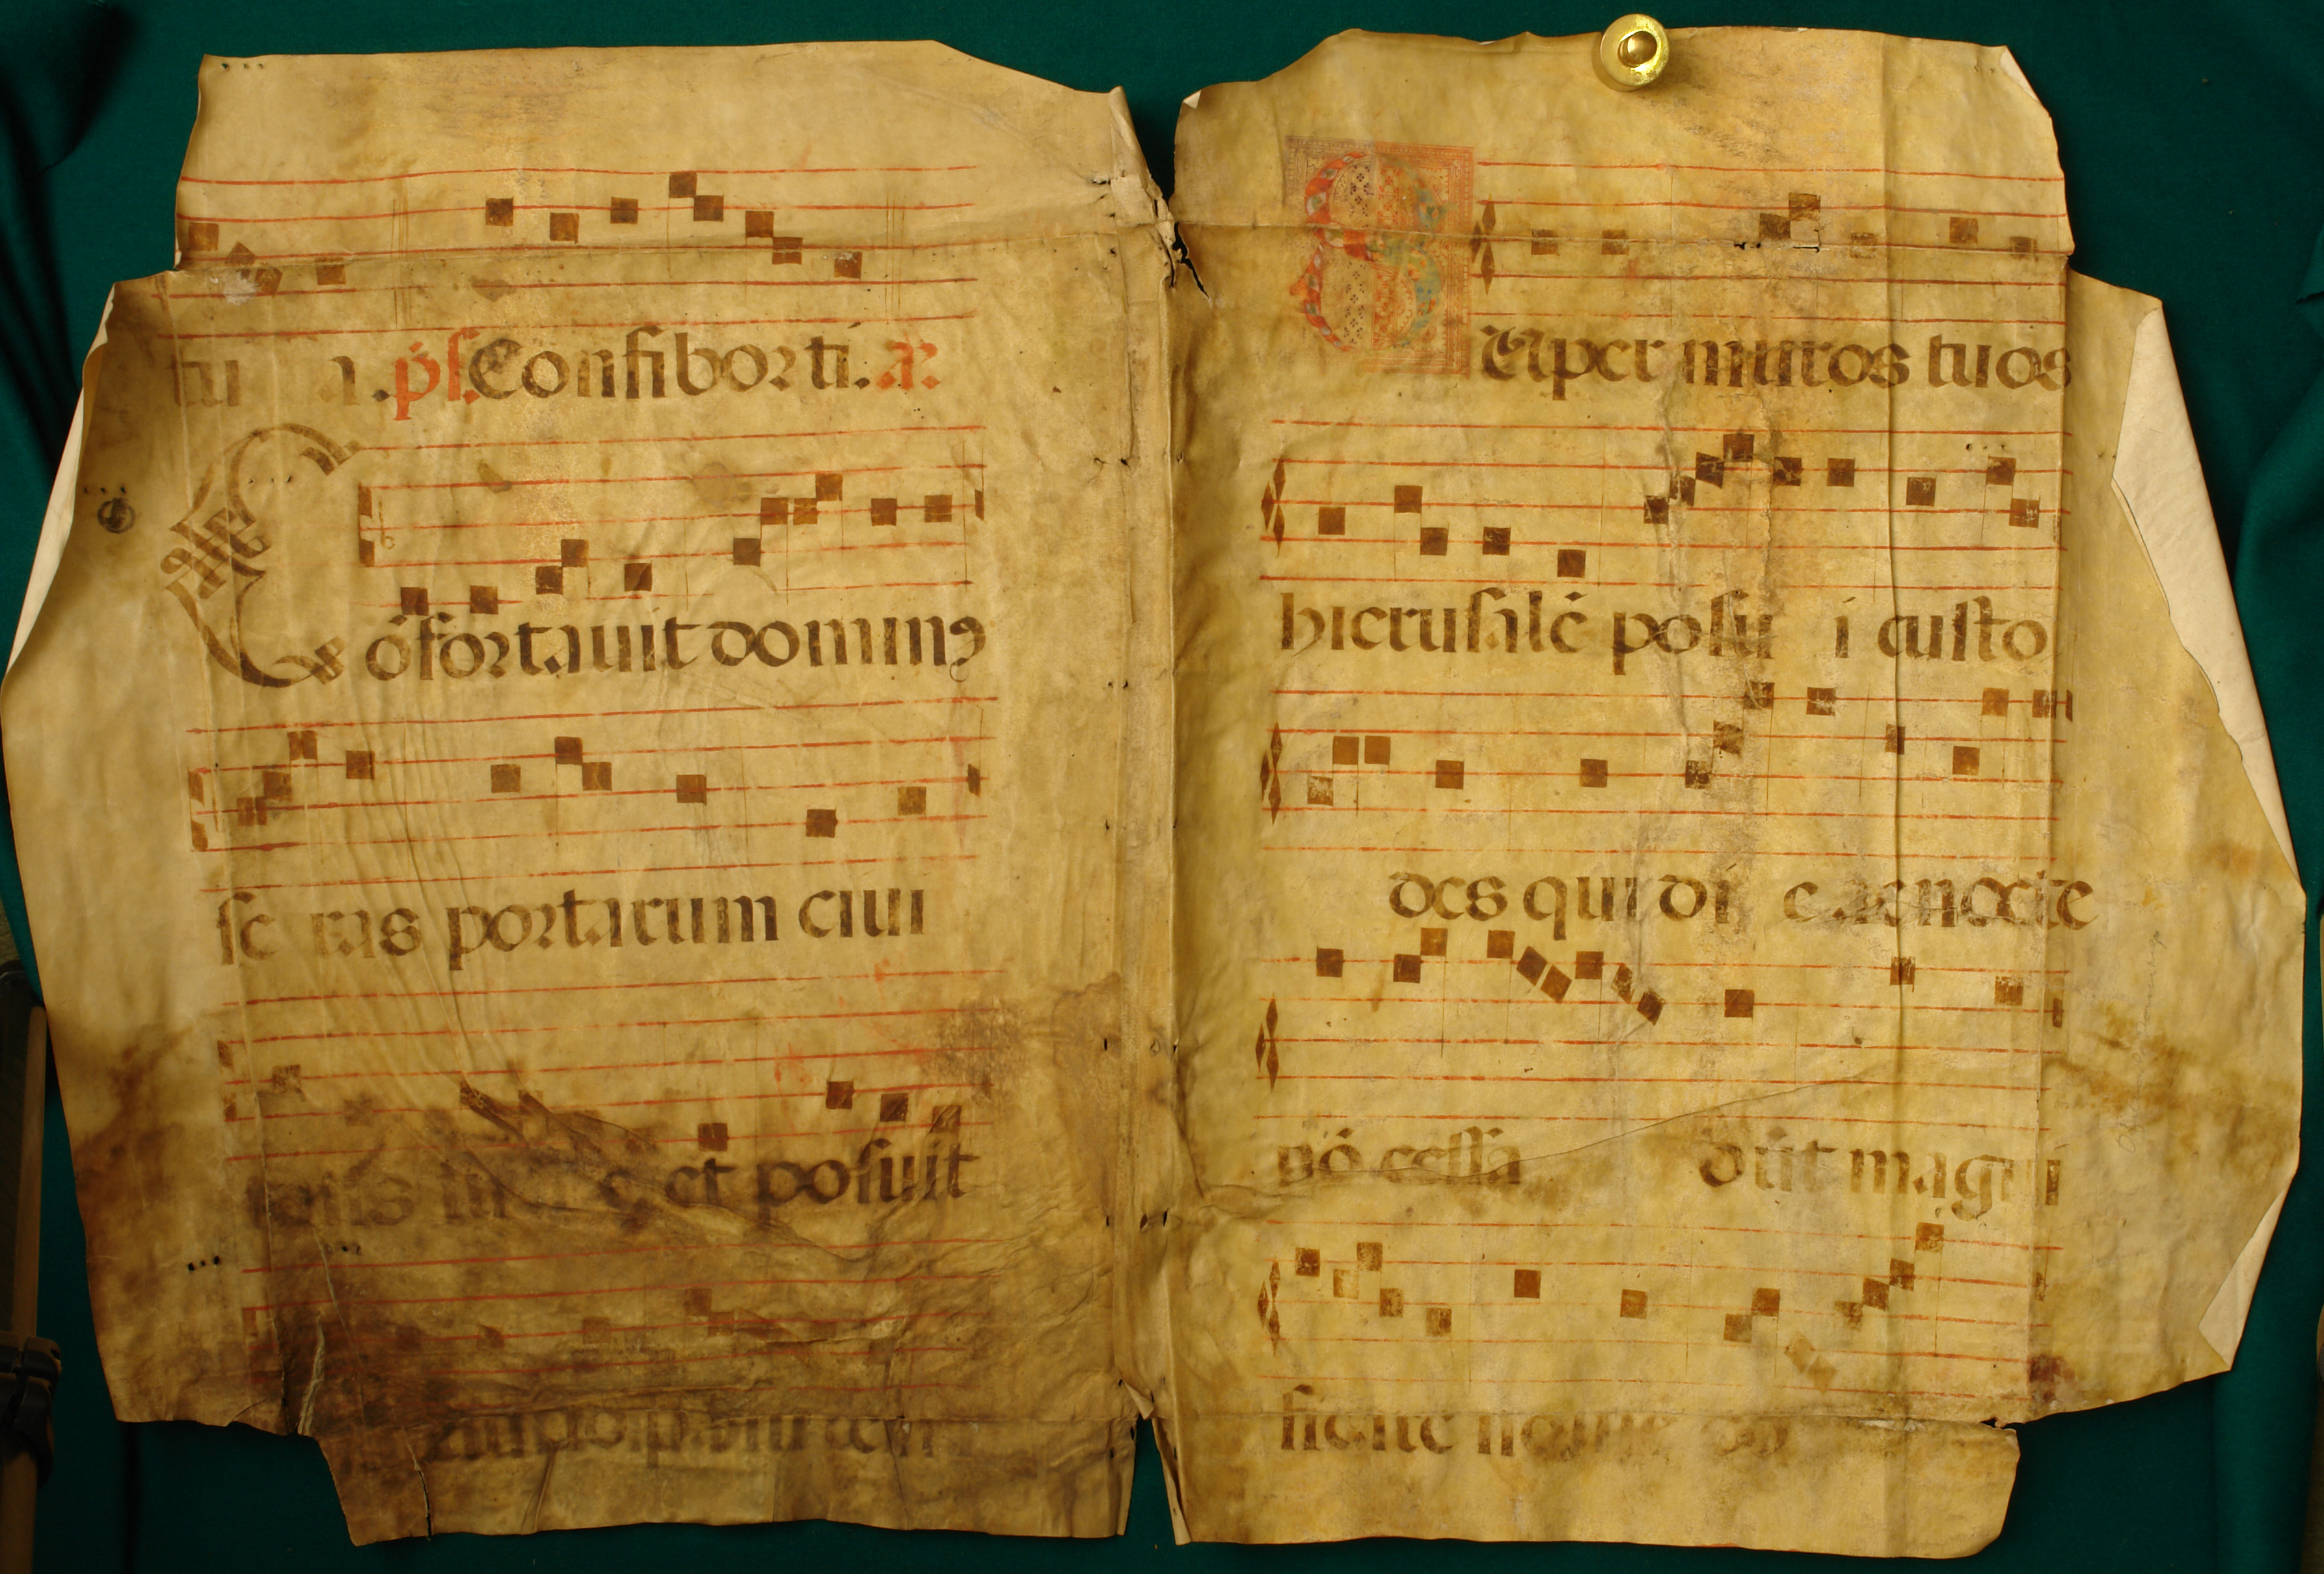 tu a. ps. Confibor ti. a.
Cōfortauit dominꝯ
se ras portarum ciui
et posuit
Super muros tuos
hierusalē posu i custo
des qui di e ac nocte
nō cessa būt magni
ficate nomē